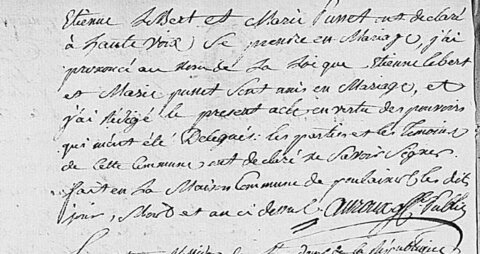 Etienne Lebert et Marie Punet ont declaré
à haute voix Se prendre en Mariage, j'ai
prononcé au Nom de La Loi que Etienne lebert
et Marie punet Sont unis en Mariage, et
j'ai Rédigé le present acte en vertu des pouvoirs
qui m'ont été Délégués: les parties et les Temoins
de Cette Commune, ont declaré ne Savoir Signer
fait en La Maison Commune de poulaines les dits
jour, Mois et an ci dessus. auroux Public
de la République